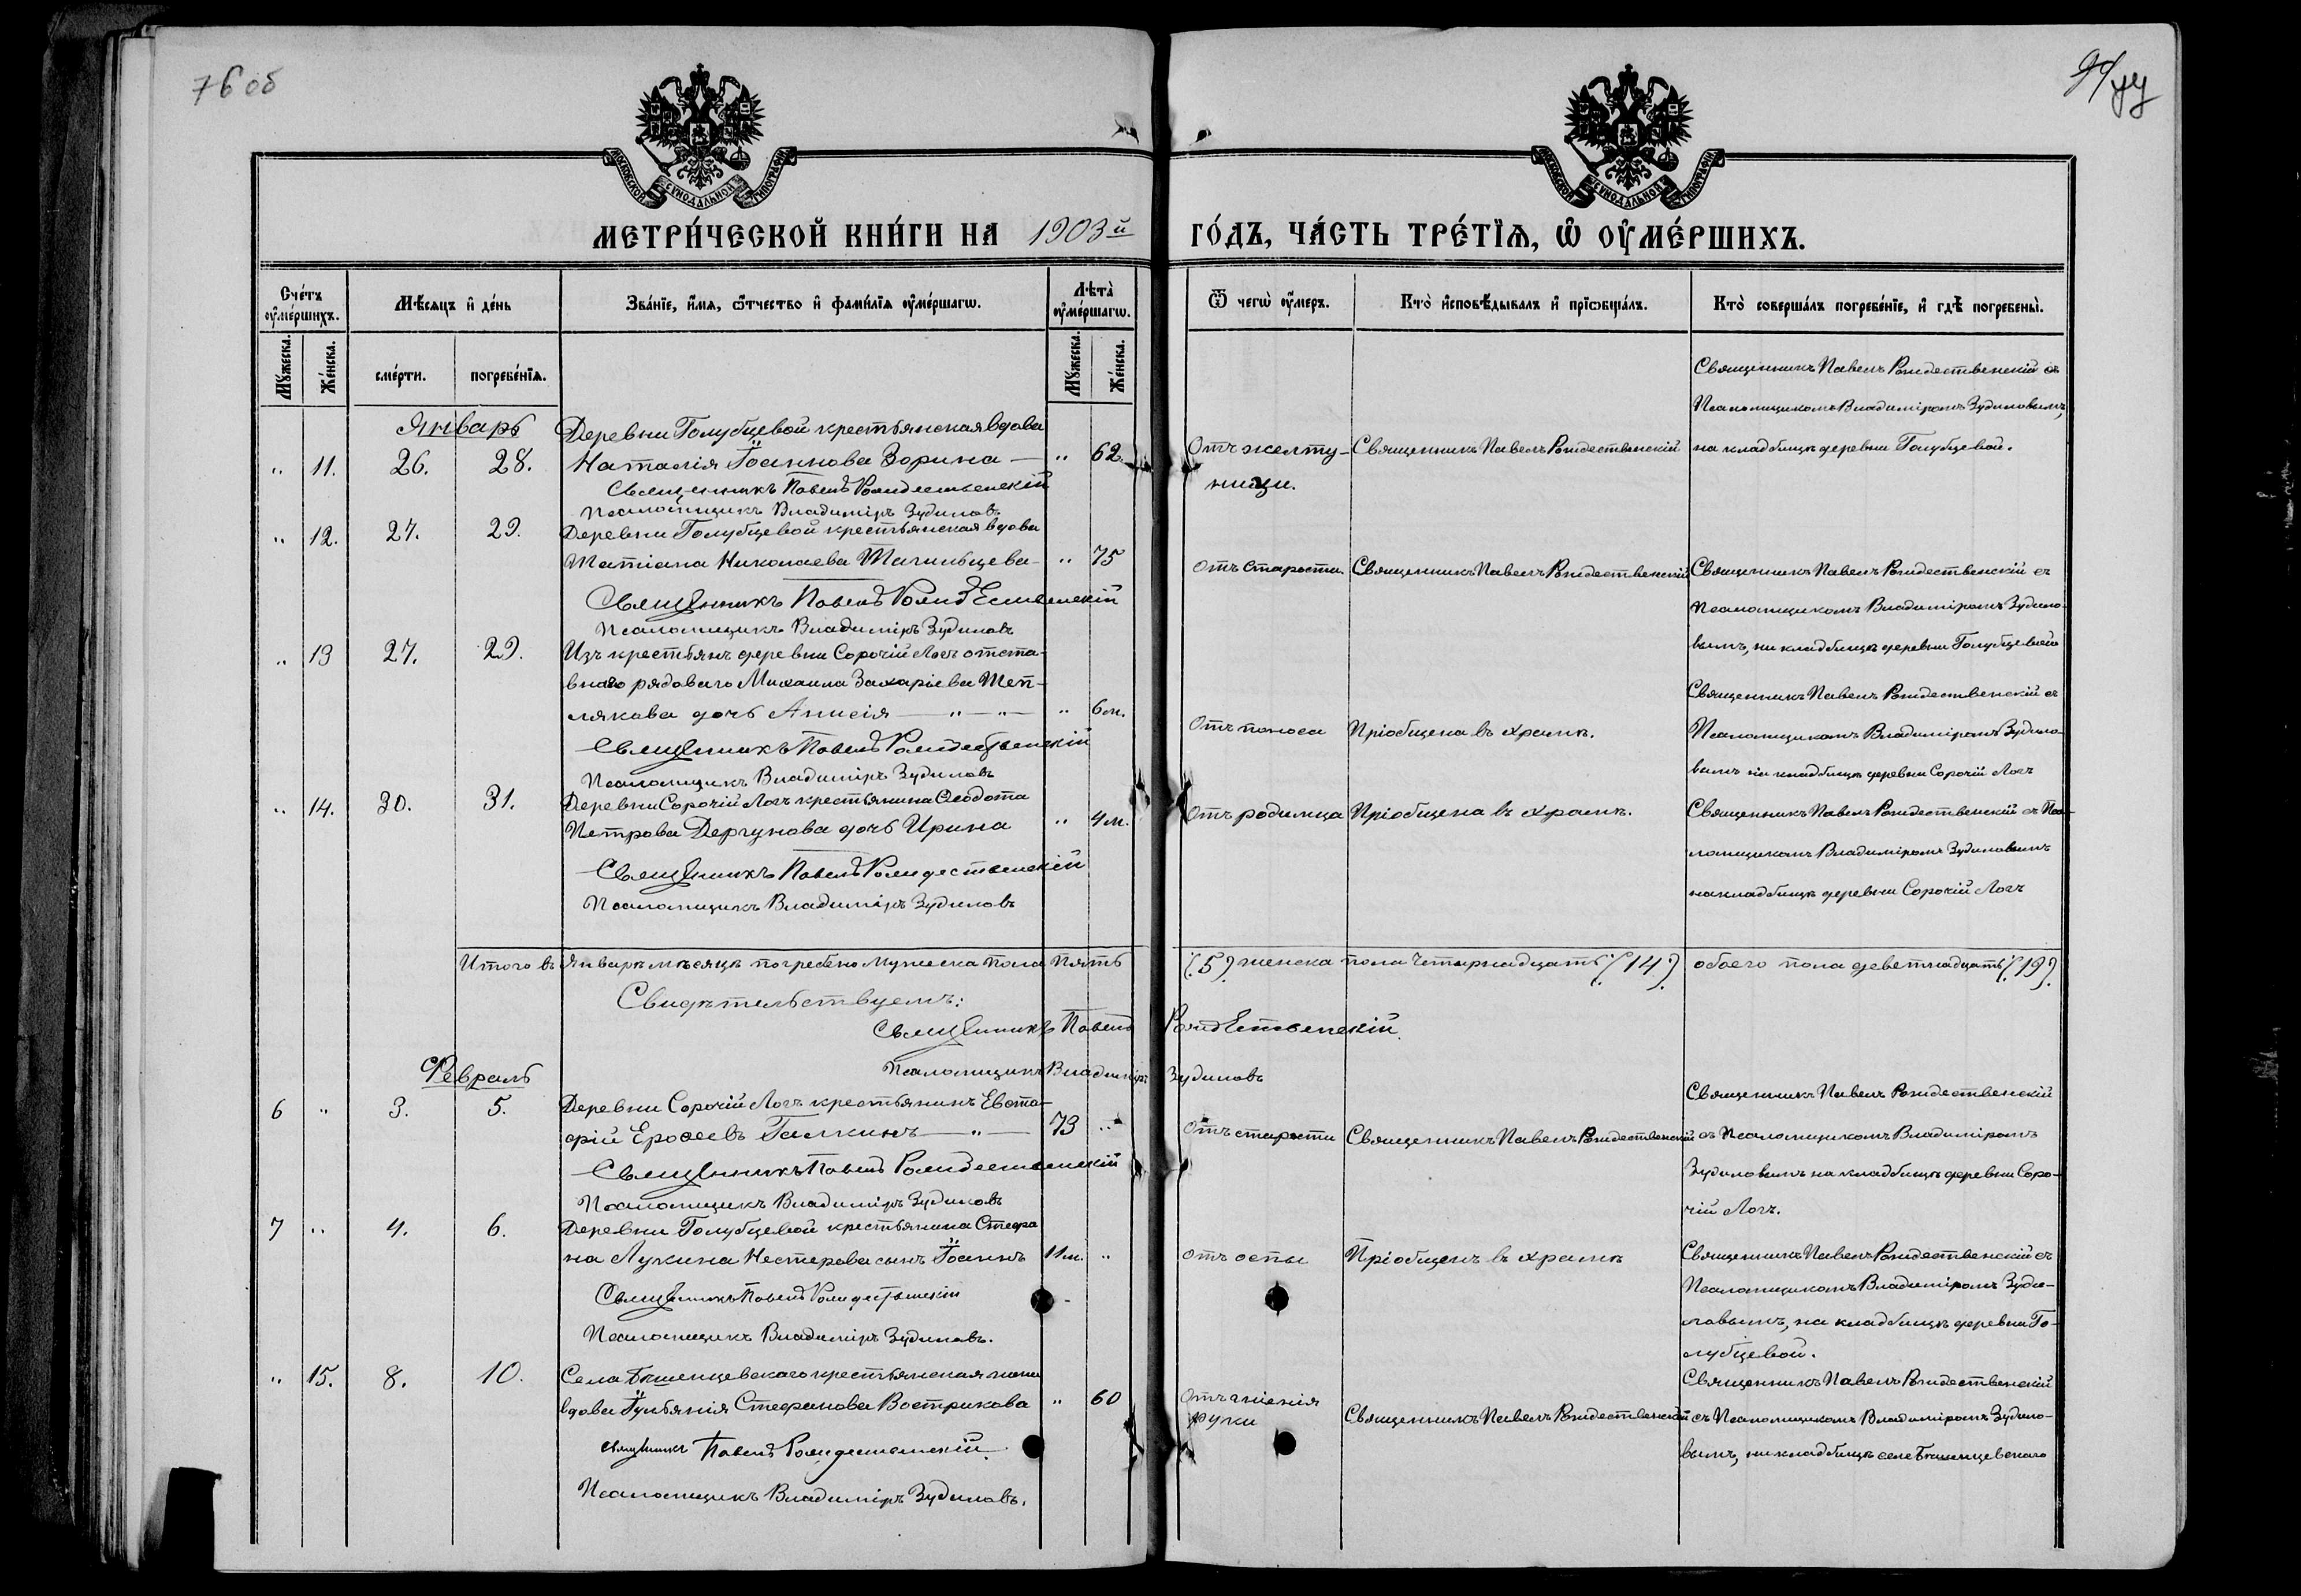 76 об
77
МОСКОВСКОЙ СУНОДАЛЬНОЙ ТИПОГРАФІИ
МОСКОВСКОЙ СУНОДАЛЬНОЙ ТИПОГРАФІИ
МЕТРИ́ЧЕСКОЙ КНИ́ГИ НА 1903й ГО́ДЪ, ЧА́СТЬ ТРЕ́ТЇѦ, Ѡ҆ ОУ҆МЕ́РШИХЪ.
Сче́тъ оу҆ме́ршихъ.
Мѣ́сяцъ и҆ де́нь
Зва́нїе, и҆́мя, ѻ҆́тчество и҆ фами́лїя оу҆ме́ршагѡ.
Лѣта̀ оу҆ме́ршагѡ.
Ѿ чегѡ̀ оу҆́меръ.
Кто̀ и҆сповѣ́дывалъ и҆ прїѡбща́лъ.
Кто̀ соверша́лъ погребе́нїе, и҆ гдѣ̀ погребены̀.
Мꙋ́жеска.
Же́нска.
сме́рти.
погребе́нїя.
Мꙋ́жеска.
Же́нска.
Январь
„ 11. 26. 28. Деревни Голубцевой крестьянская вдова
Наталія Іоаннова Зорина — „ 62.
Священникъ Павелъ Рождественскій
Псаломщикъ Владиміръ Зудиловъ
Отъ желту-
ницы.
Священникъ Павелъ Рождественскій
Священникъ Павелъ Рождественскій съ
Псаломщикомъ Владиміромъ Зудиловымъ,
на кладбищѣ деревни Голубцевой.
„ 12. 27. 29. Деревни Голубцевой крестьянская вдова
Татіана Николаева — „ 75
Священникъ Павелъ Рождественскій
Псаломщикъ Владиміръ Зудиловъ
Отъ старости
Священникъ Павелъ Рождественскій
Священникъ Павелъ Рождественскій съ
Псаломщикомъ Владиміромъ Зудило-
вымъ, на кладбищѣ деревни Голубцевой
„ 13 27. 29. Изъ крестьянъ деревни Сорочій Логъ отста-
вного рядоваго Михаила Захаріева Теп-
лякова дочь Анисія — „ — „ — „ 6 м.
Священникъ Павелъ Рождественскій
Псаломщикъ Владиміръ Зудиловъ
Отъ поноса
Пріобщена въ храмѣ.
Священникъ Павелъ Рождественскій съ
Псаломщикомъ Владиміромъ Зудило-
вымъ на кладбищѣ деревни Сорочій Логъ
„ 14. 30. 31. Деревни Сорочій Логъ крестьянина Ѳеодота
Петрова Дергунова дочь Ирина „ 4 м.
Священникъ Павелъ Рождественскій
Псаломщикъ Владиміръ Зудиловъ
Отъ родимца
Пріобщена въ храмѣ.
Священникъ Павелъ Рождественскій съ Пса-
ломщикомъ Владиміромъ Зудиловымъ
на кладбищѣ деревни Сорочій Логъ
Итого въ Январѣ мѣсяцѣ погребено мужеска пола пять (5) женска пола четырнадцать (14). обоего пола девятнадцать (19).
Свидѣтельствуемъ:
Священникъ Павелъ Рождественскій.
Псаломщикъ Владиміръ Зудиловъ
Февраль
6 „ 3. 5. Деревни Сорочій Логъ крестьянинъ Евста-
фій Ерофеевъ Галкинъ — „ — 73 „
Священникъ Павелъ Рождественскій
Псаломщикъ Владиміръ Зудиловъ
Отъ старости
Священникъ Павелъ Рождественскій
Священникъ Павелъ Рождественскій
съ Псаломщикомъ Владиміромъ
Зудиловымъ на кладбищѣ деревни Соро-
чій Логъ.
7 „ 4. 6. Деревни Голубцевой крестьянина Стефа
на Лукина Нестерова сынъ Іоаннъ 11 м. „
Священникъ Павелъ Рождественскій
Псаломщикъ Владиміръ Зудиловъ.
отъ оспы
Пріобщенъ въ храмѣ
Священникъ Павелъ Рождественскій съ
Псаломщикомъ Владиміромъ Зуди-
ловымъ, на кладбищѣ деревни Го-
лубцевой.
„ 15. 8. 10. Села крестьянская
вдова Іуліанія Стефанова Вострикова „ 60
Священникъ Павелъ Рождественскій.
Псаломщикъ Владиміръ Зудиловъ.
Отъ гніенія
руки
Священникъ Павелъ Рождественскій
Священникъ Павелъ Рождественскій
съ Псаломщикомъ Владиміромъ Зудило-
вымъ, на кладбищѣ села